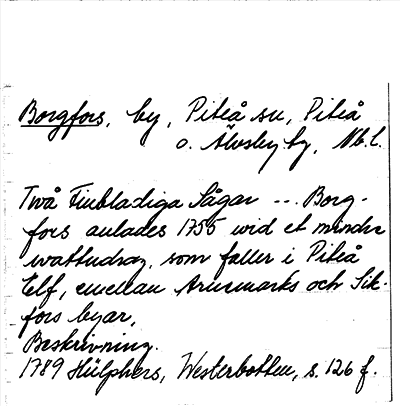 Borgfors, by, Piteå sn, Piteå
o. Älvsby tg, Nb. l.
Två Finbladiga Sågar --- Borg-
fors anlades 1755 wid et mindre
wattudrag, som faller i Piteå
Elf, emellan Arnemarks och Sik-
fors byar,
Beskrivning.
1789 Hülphers, Westerbotten, s. 126 f.